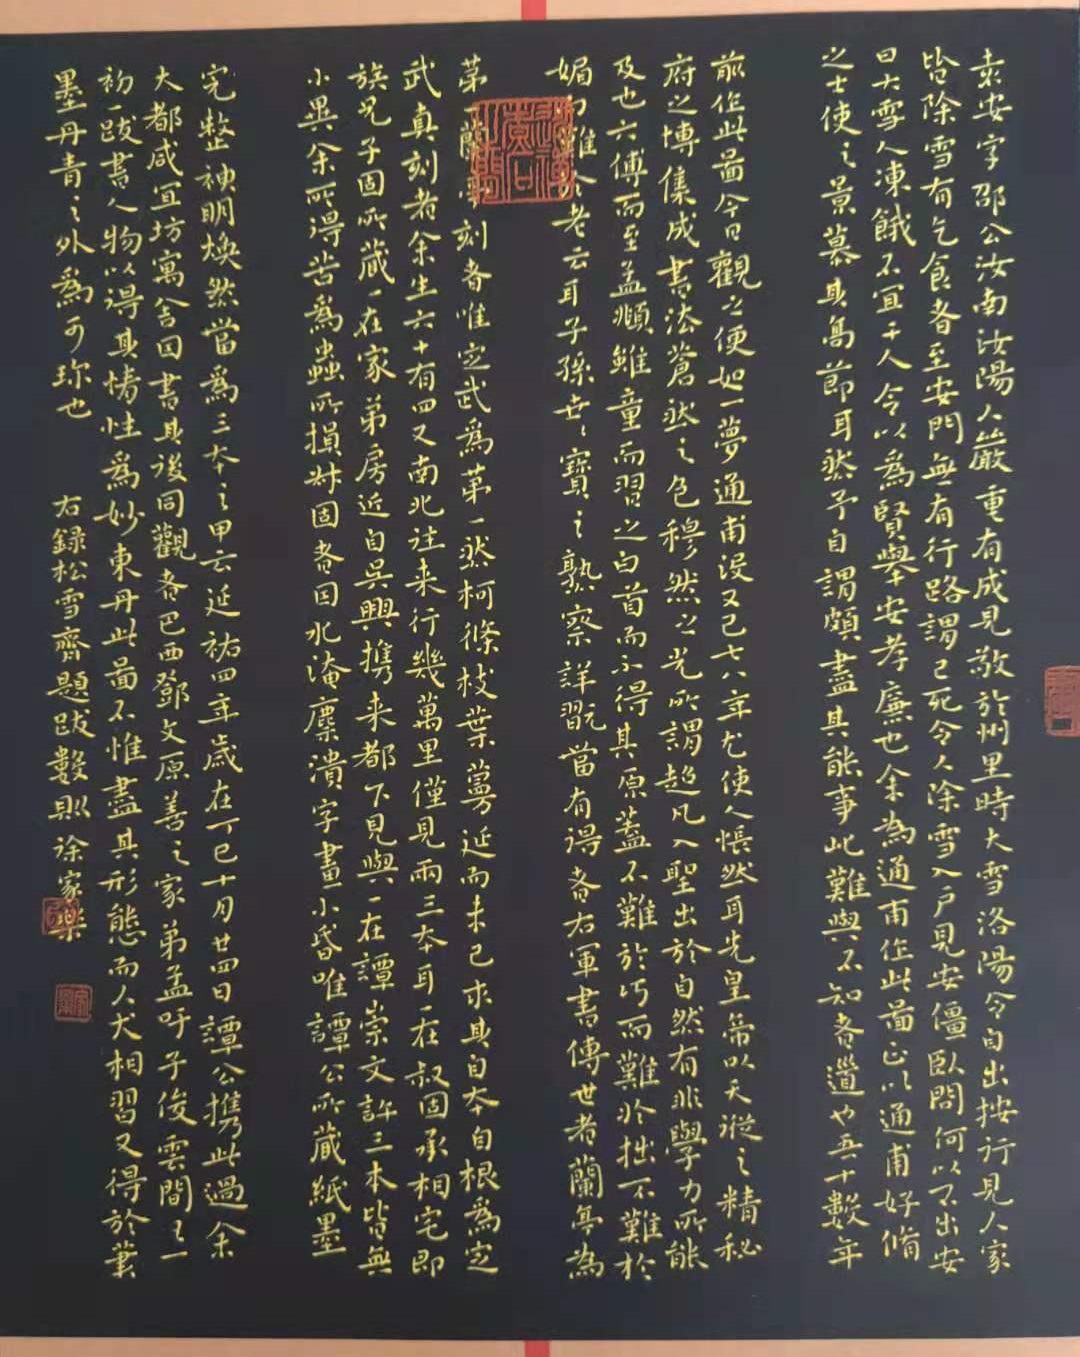 袁安字邵公汝南汝陽人嚴重有威見敬於州里時大雪洛陽令自出按行見人家
皆除雪有乞食者至安門無有行路謂已死令人除雪入户見安僵臥問何以不出安
曰大雪人凍餓不宜干人令以為賢舉安孝廉也余為通甫作此圖正以通甫好脩
之士使之景慕其高節耳然予自謂頗盡其能事此難與不知者道也五十數年
前作此圖今日觀之便如一夢通甫没又已七八年尤使人悵然耳先皇帝以天縱之精秘
府之博集成書法蒼然之色穆然之光所謂超凡入聖出於自然有非學力所能
及也六傅而至孟頫雖童而習之白首而不得其原蓋不難於巧而難於拙不難於
媚而難於老云耳子孫世〻寶之熟察詳翫當有得者右軍書傳世者蘭亭為
第一蘭亭刻者唯定武為第一然柯條枝葉蔓延而未已求其自本自根為定
武真刻者余生六十有四又南北往来行幾萬里僅見兩三本耳一在叔固承相宅即
族兄子固所藏一在家弟房近自吴興携来都下見與一在譚崇文許三本皆無
小異余所得苦為蟲所損林固者因水淹麋潰字畫小昏唯譚公所藏紙墨
完整神明煥然當為三本之甲云延祐四年歲在丁巳十月廿四日譚公携此過余
大都咸宜坊寓舍因書其後同觀者巴西鄧文原善之家弟孟吁子俊雲間之一
初一跋書人物以得其情性為妙東丹此圖不惟盡其形態而人犬相習又得於筆
墨丹青之外為可珎也 右録松雪齋題跋數則 涂家樂